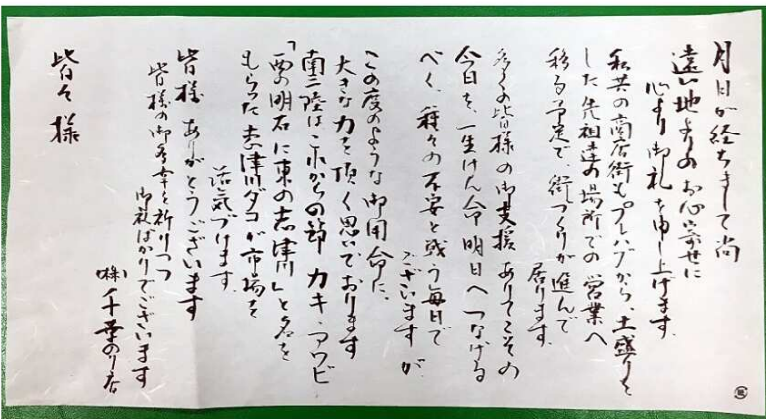 月日が経ちまして尚
遠い地よりのお心寄せに
心より御礼を申し上げます
私共の商店街もプレハブから、土盛りを
した先祖達の場所での営業へ
移る予定で、街づくりが進んで
居ります
多くの皆様の御支援ありてこその
今日を、一生けん命明日へつなげる
べく、種々の不安と戦う毎日で
ございますが
この度のような御用命に、
大きな力を頂く思いでおります
南三陸はこれからの節カキ、アワビ
「西の明石に東の志津川」と名を
もらった志津川ダコが市場を
活気づけます
皆様ありがとうございます
皆様の御多幸を祈りつつ
御礼ばかりでございます
(株)千葉のり店
皆々様